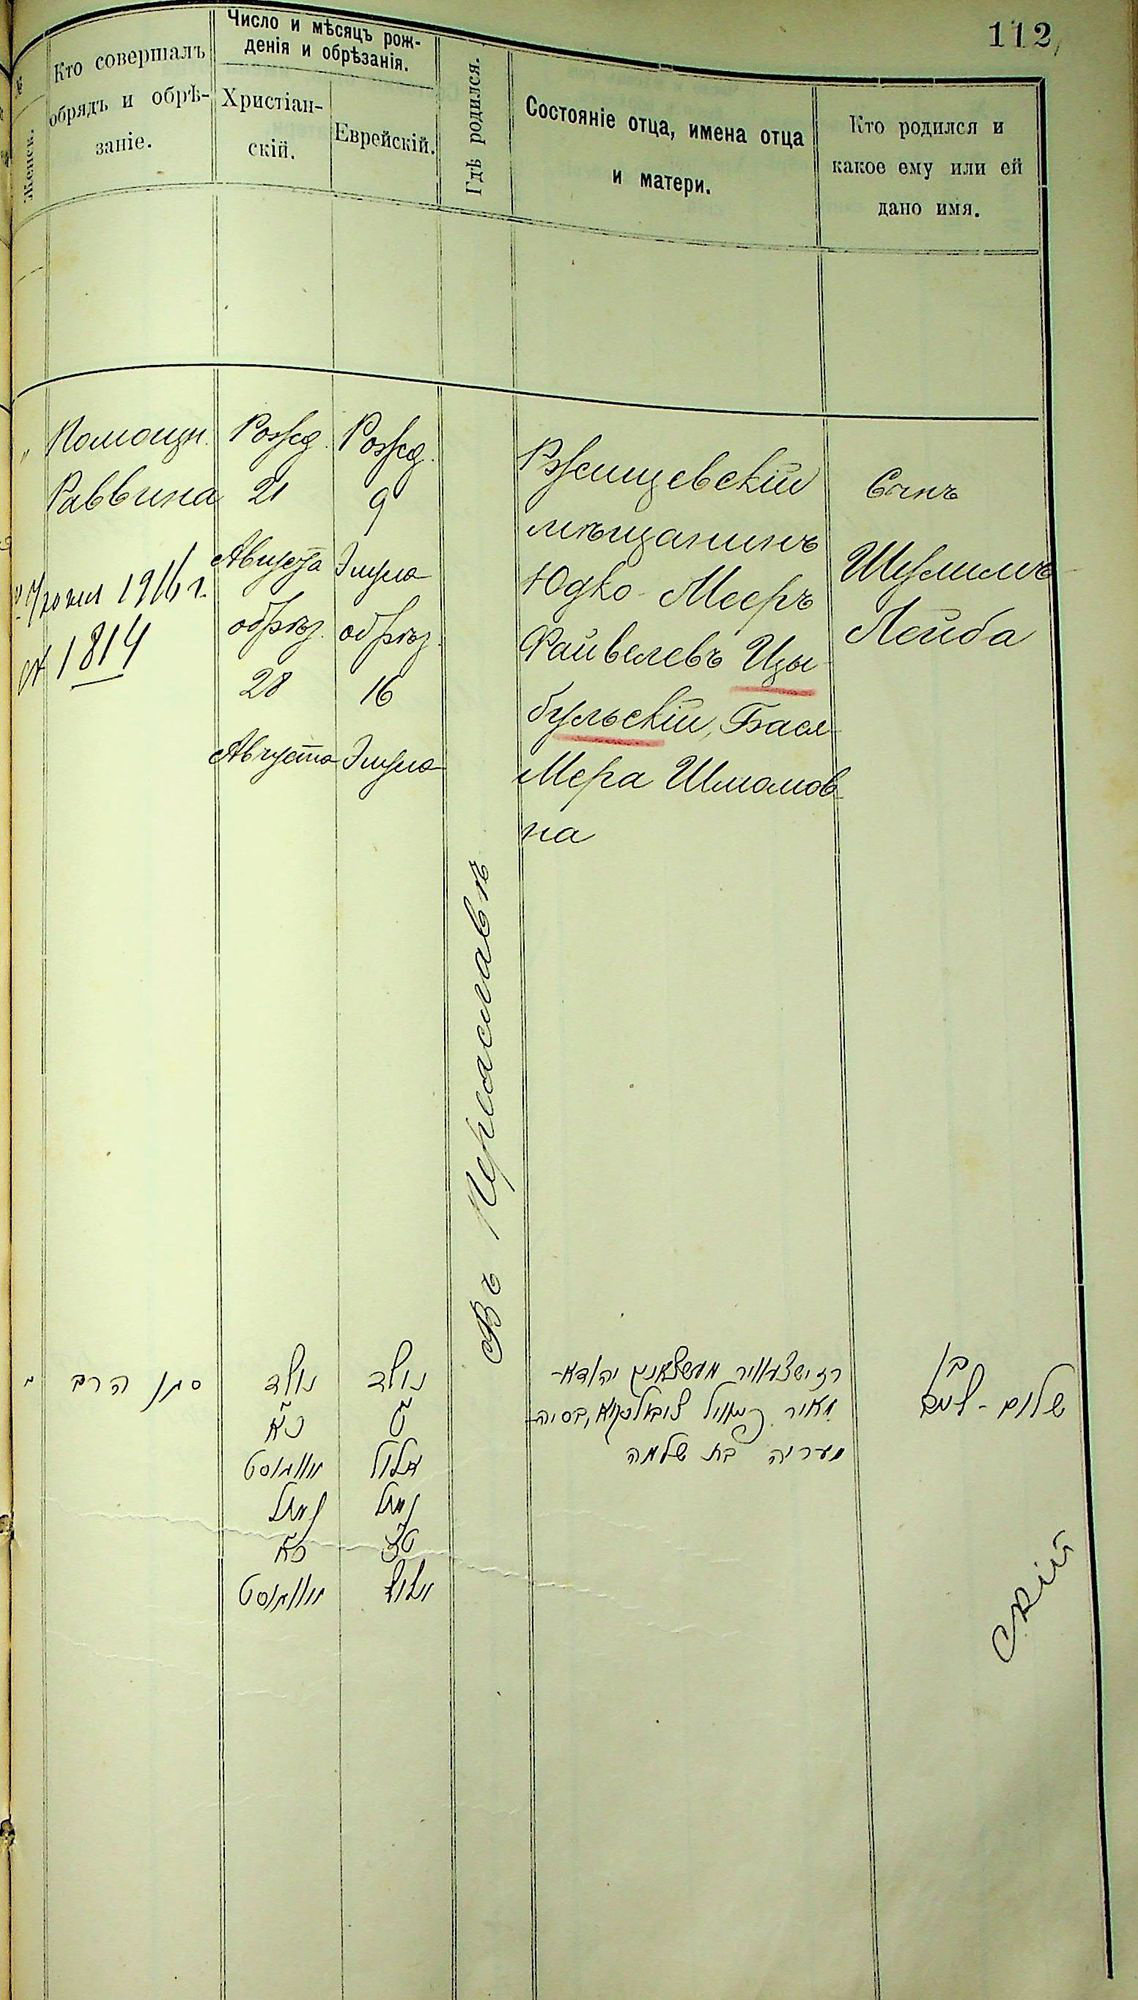 112
Женск.
Кто совершалъ
обрядъ и обрѣ-
заніе.
Число и мѣсяцъ рож-
денія и обрѣзанія.
Христіан-
скій.
Еврейскій.
Гдѣ родился.
Состояніе отца, имена отца
и матери.
Кто родился и
какое ему или ей
дано имя.
Помощн.
Раввина
1916 г.
№ 1814
Рожд.
21
Августа
обрѣз.
28
Августа
Рожд.
9
Элула
обрѣз.
16
Элула
Въ Переяславѣ
Ржищевскій
мѣщанинъ
Юдко-Мееръ
Файвелевъ Цы-
бульскій, Бася-
Мера Шлиомов-
на
Сынъ
Шулимъ
Лейба
סגן הרב
נולד
כא
אווגוסט
נמול
אווגוסט
נולד
ט
אלול
נמול
טז
אלול
יהודא-
מאיר
בת שלמה
בן
שלום-
скій